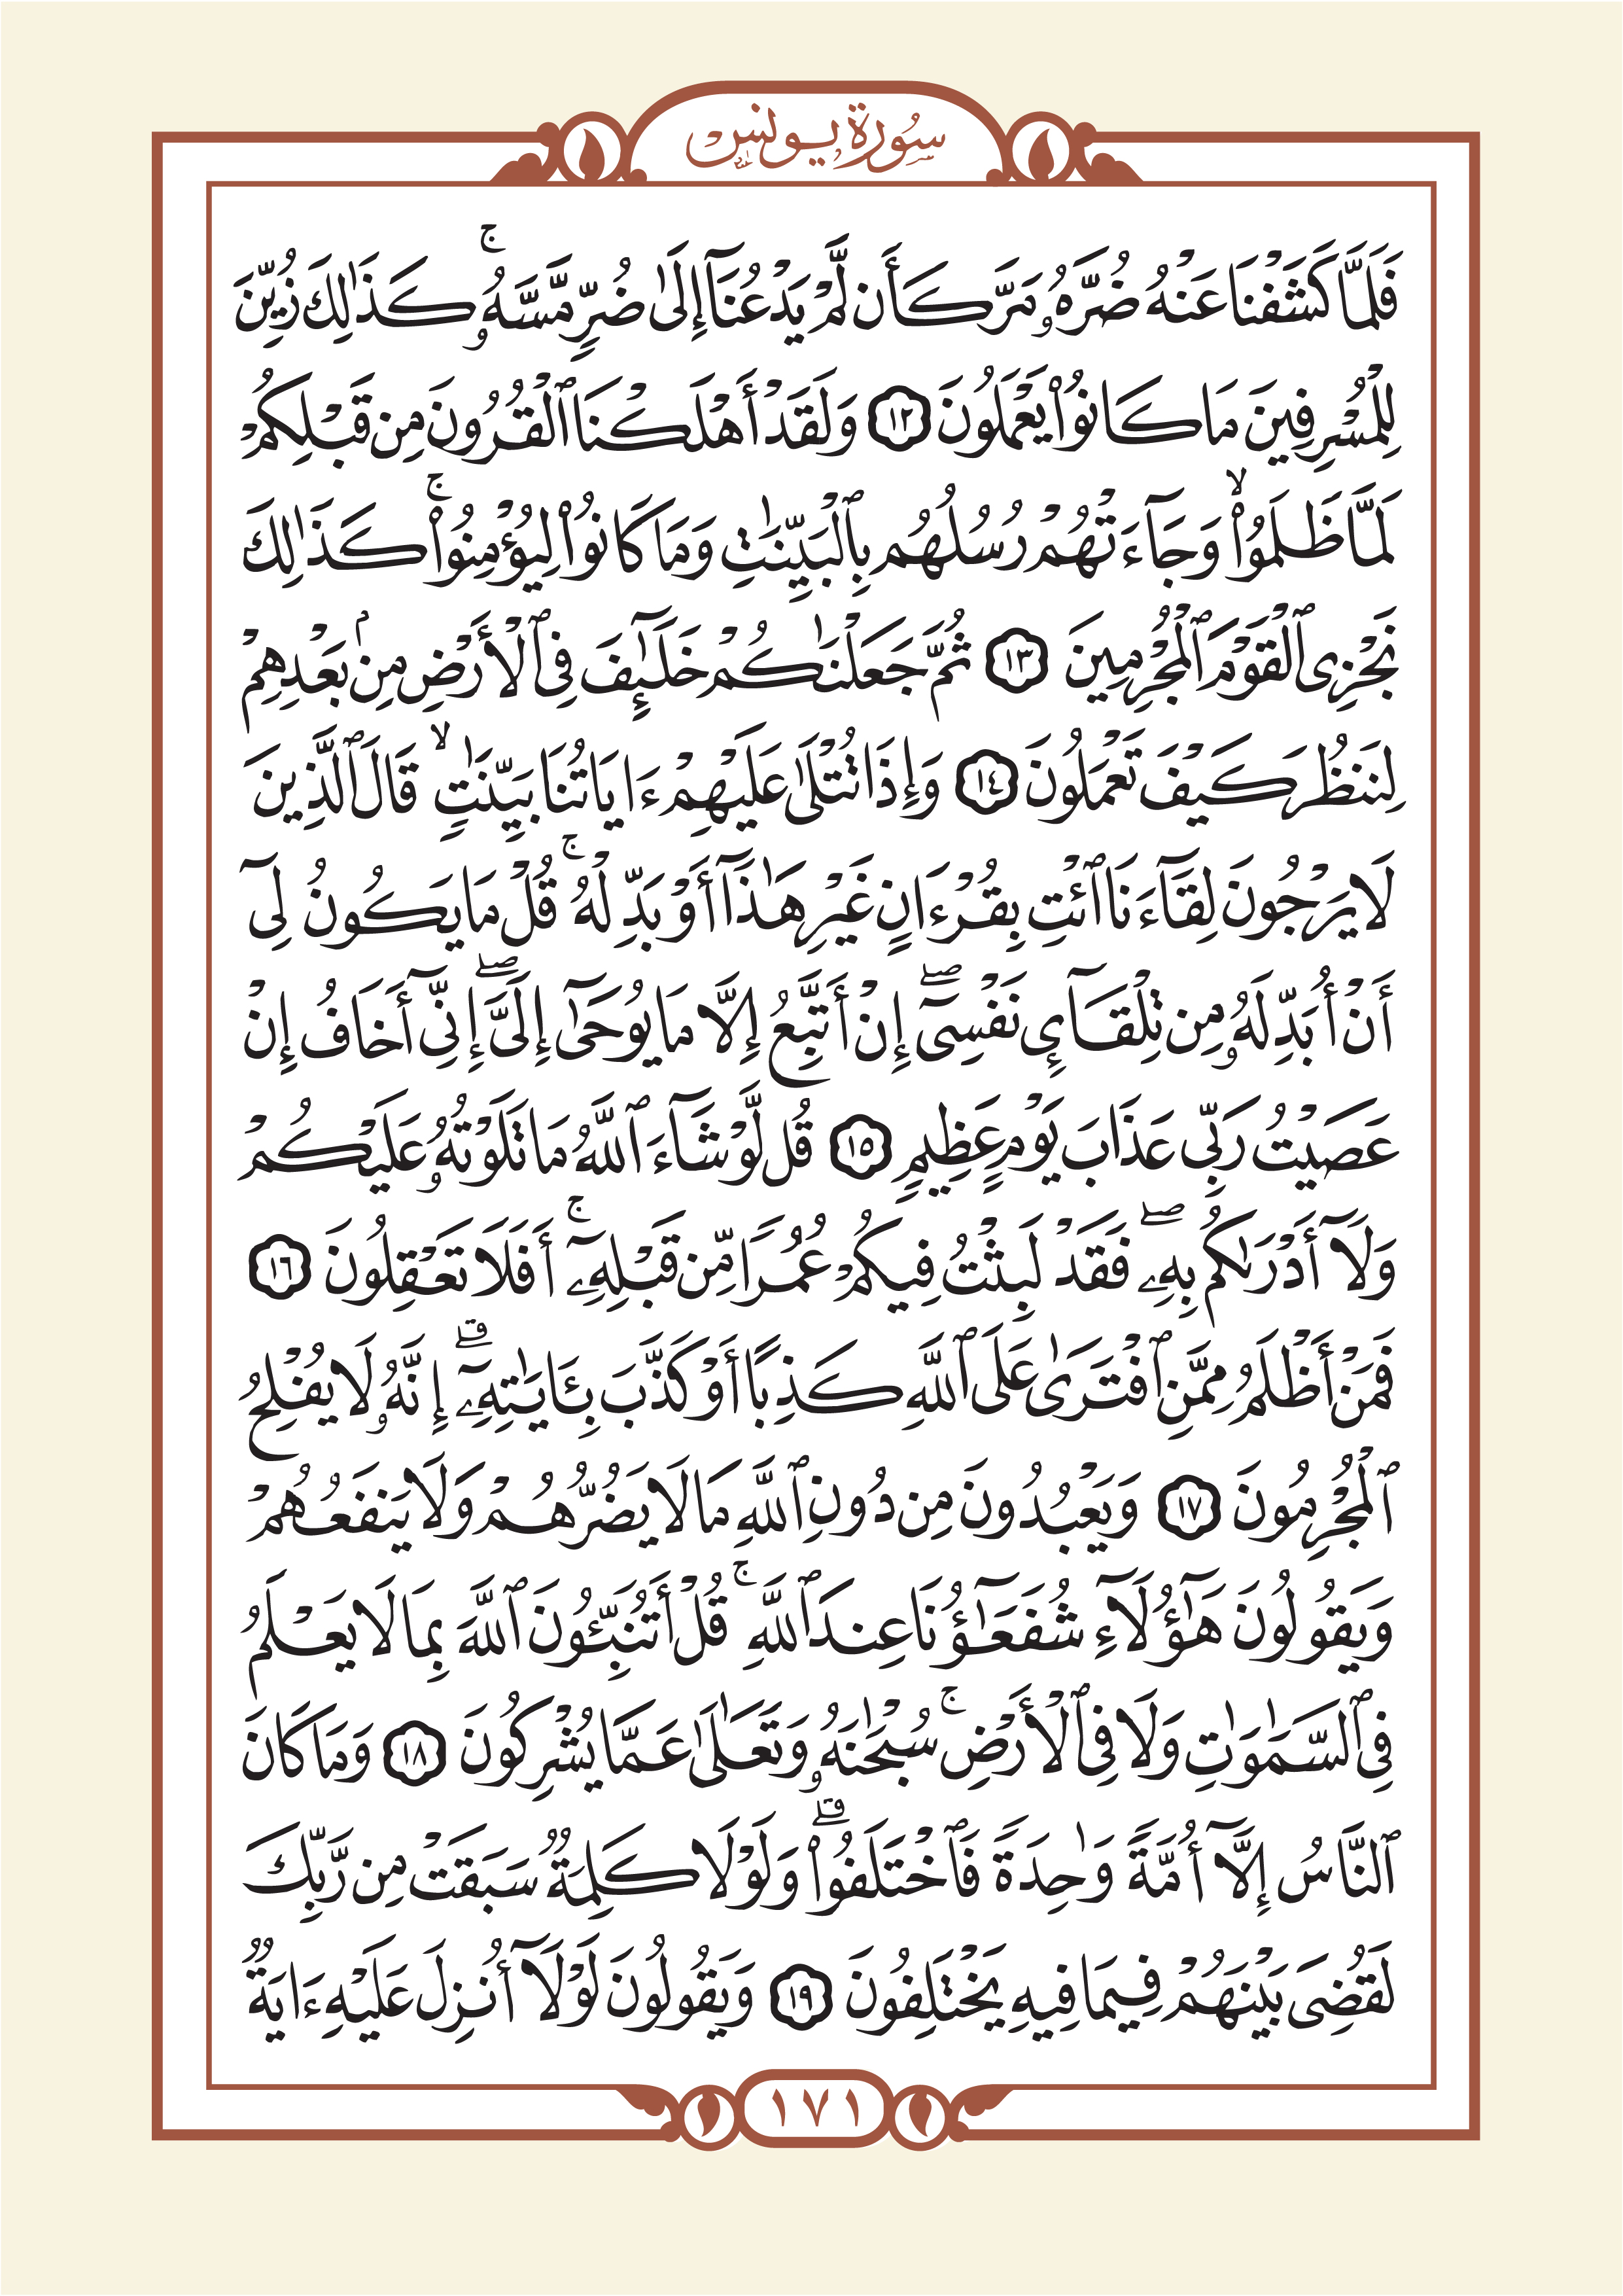 سُورَةُ يُونُس
فَلَمَّا كَشَفْنَا عَنْهُ ضُرَّهُۥ مَرَّ كَأَن لَّمْ يَدْعُنَآ إِلَىٰ ضُرٍّ مَّسَّهُۥ ۚ كَذَٰلِكَ زُيِّنَ
لِلْمُسْرِفِينَ مَا كَانُوا۟ يَعْمَلُونَ ١٢ وَلَقَدْ أَهْلَكْنَا ٱلْقُرُونَ مِن قَبْلِكُمْ
لَمَّا ظَلَمُوا۟ ۙ وَجَآءَتْهُمْ رُسُلُهُم بِٱلْبَيِّنَٰتِ وَمَا كَانُوا۟ لِيُؤْمِنُوا۟ ۚ كَذَٰلِكَ
نَجْزِى ٱلْقَوْمَ ٱلْمُجْرِمِينَ ١٣ ثُمَّ جَعَلْنَٰكُمْ خَلَٰٓئِفَ فِى ٱلْأَرْضِ مِنۢ بَعْدِهِمْ
لِنَنظُرَ كَيْفَ تَعْمَلُونَ ١٤ وَإِذَا تُتْلَىٰ عَلَيْهِمْ ءَايَاتُنَا بَيِّنَٰتٍ ۙ قَالَ ٱلَّذِينَ
لَا يَرْجُونَ لِقَآءَنَا ٱئْتِ بِقُرْءَانٍ غَيْرِ هَٰذَآ أَوْ بَدِّلْهُ ۚ قُلْ مَا يَكُونُ لِىٓ
أَنْ أُبَدِّلَهُۥ مِن تِلْقَآئِ نَفْسِىٓ ۖ إِنْ أَتَّبِعُ إِلَّا مَا يُوحَىٰٓ إِلَىَّ ۖ إِنِّىٓ أَخَافُ إِنْ
عَصَيْتُ رَبِّى عَذَابَ يَوْمٍ عَظِيمٍ ١٥ قُل لَّوْ شَآءَ ٱللَّهُ مَا تَلَوْتُهُۥ عَلَيْكُمْ
وَلَآ أَدْرَىٰكُم بِهِۦ ۖ فَقَدْ لَبِثْتُ فِيكُمْ عُمُرًا مِّن قَبْلِهِۦٓ ۚ أَفَلَا تَعْقِلُونَ ١٦
فَمَنْ أَظْلَمُ مِمَّنِ ٱفْتَرَىٰ عَلَى ٱللَّهِ كَذِبًا أَوْ كَذَّبَ بِـَٔايَٰتِهِۦٓ ۗ إِنَّهُۥ لَا يُفْلِحُ
ٱلْمُجْرِمُونَ ١٧ وَيَعْبُدُونَ مِن دُونِ ٱللَّهِ مَا لَا يَضُرُّهُمْ وَلَا يَنفَعُهُمْ
وَيَقُولُونَ هَٰٓؤُلَآءِ شُفَعَٰٓؤُنَا عِندَ ٱللَّهِ ۚ قُلْ أَتُنَبِّـُٔونَ ٱللَّهَ بِمَا لَا يَعْلَمُ
فِى ٱلسَّمَٰوَٰتِ وَلَا فِى ٱلْأَرْضِ ۚ سُبْحَٰنَهُۥ وَتَعَٰلَىٰ عَمَّا يُشْرِكُونَ ١٨ وَمَا كَانَ
ٱلنَّاسُ إِلَّآ أُمَّةً وَٰحِدَةً فَٱخْتَلَفُوا۟ ۗ وَلَوْلَا كَلِمَةٌ سَبَقَتْ مِن رَّبِّكَ
لَقُضِىَ بَيْنَهُمْ فِيمَا فِيهِ يَخْتَلِفُونَ ١٩ وَيَقُولُونَ لَوْلَآ أُنزِلَ عَلَيْهِ ءَايَةٌ
١٧١